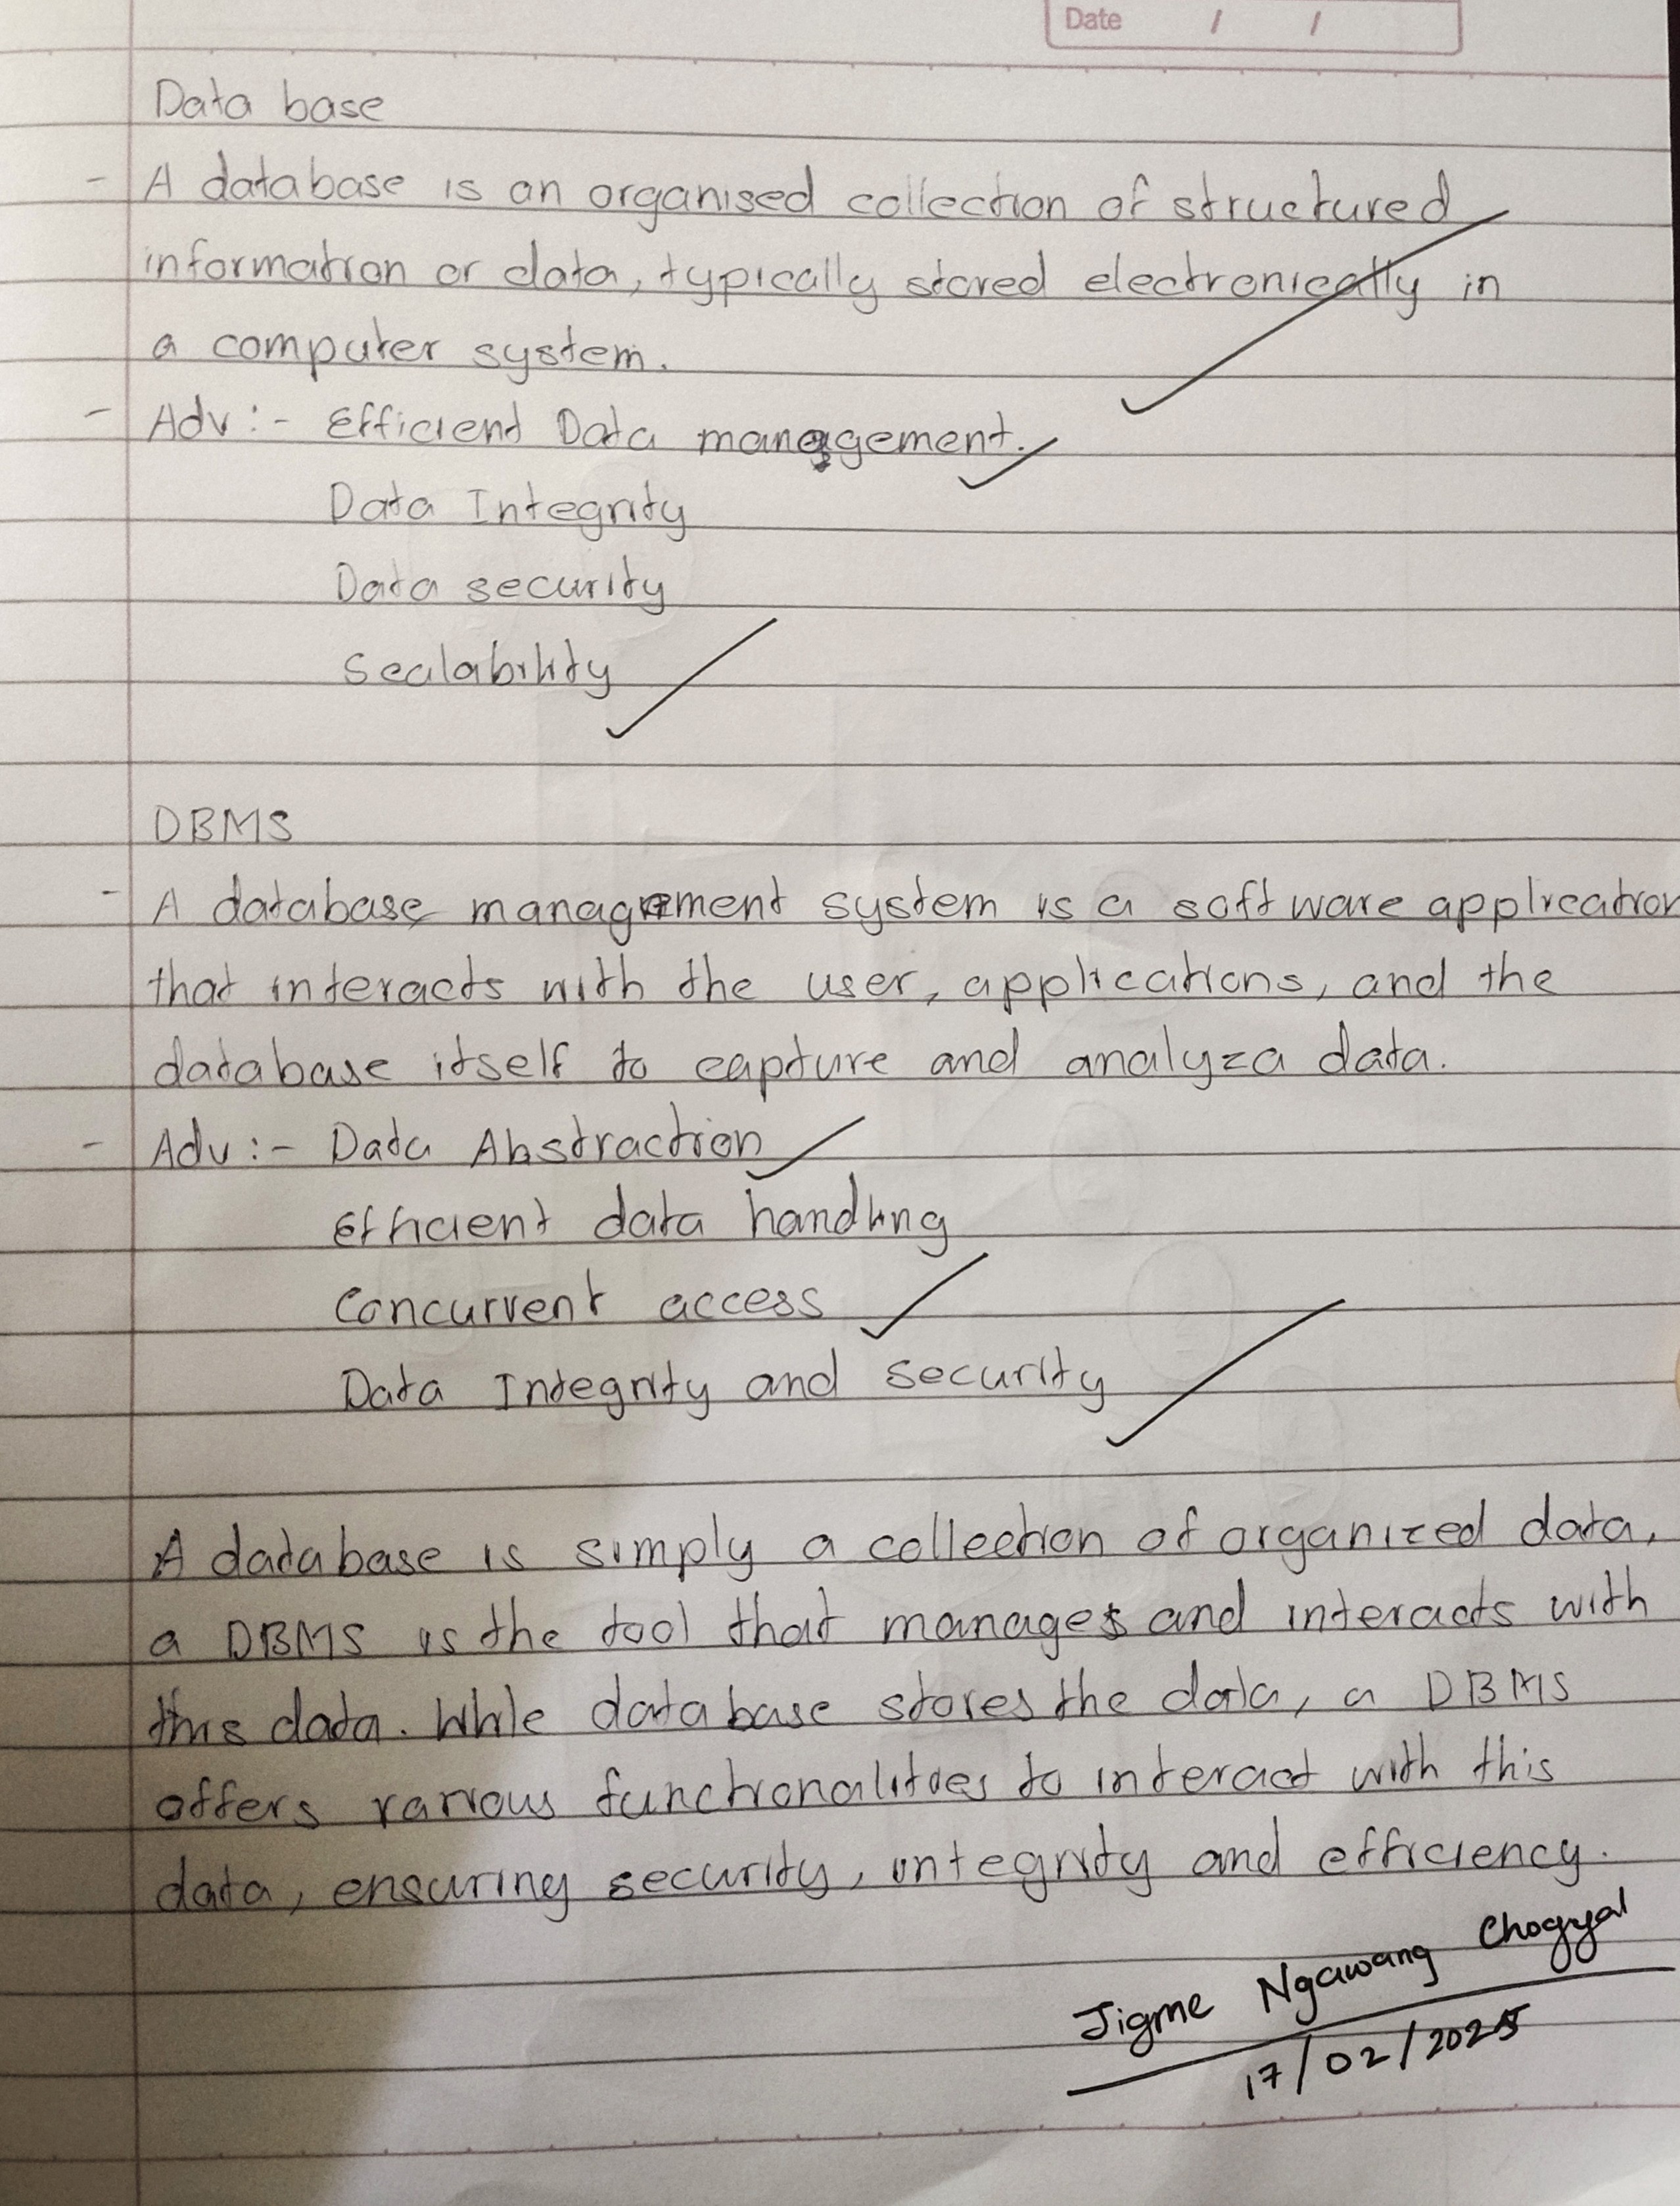 Date / /
Data base
- A database is an organised collection of structured
information or data, typically stored electronically in
a computer system.
- Adv :- Efficient Data management.
Data Integrity
Data security
Scalability
DBMS
- A database management system is a software application
that interacts with the user, applications, and the
database itself to capture and analyza data.
- Adv :- Data Abstraction
Efficient data handling
Concurrent access
Data Integrity and security
A database is simply a collection of organized data,
a DBMS is the tool that manages and interacts with
this data. While database stores the data, a DBMS
offers various functionalities to interact with this
data, ensuring security, integrity and efficiency.
Jigme Ngawang Chogyal
17/02/2025